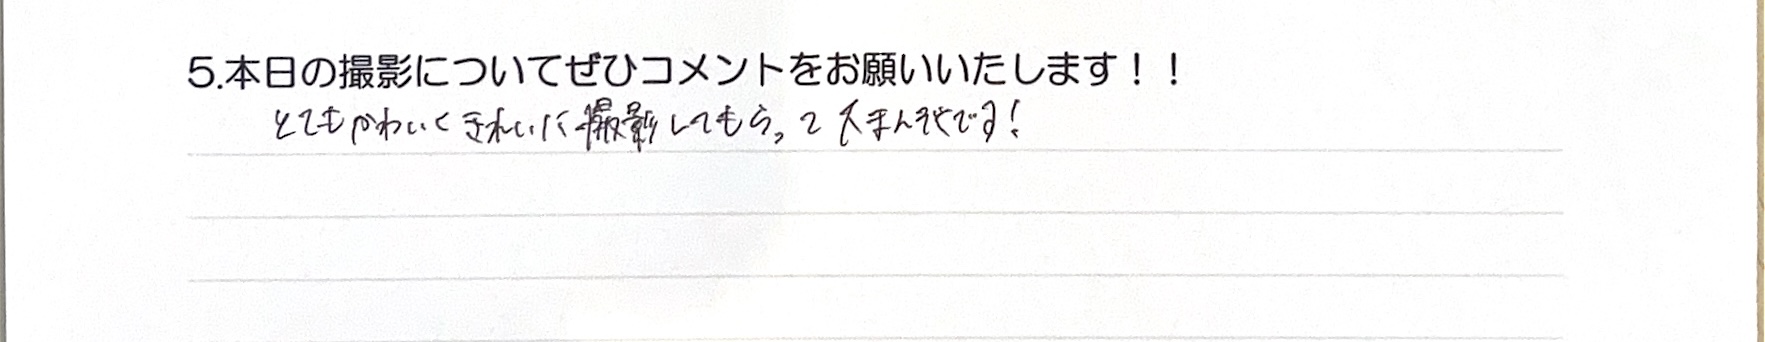 5.本日の撮影についてぜひコメントをお願いいたします！！
とてもかわいくきれいに撮影してもらって大まんぞくです！